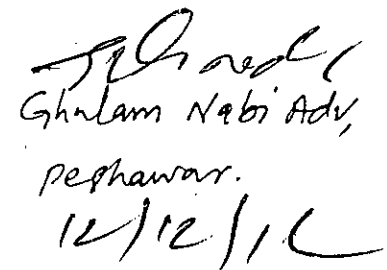 Ghulam Nabi Adv,
Peshawar.
12/12/12